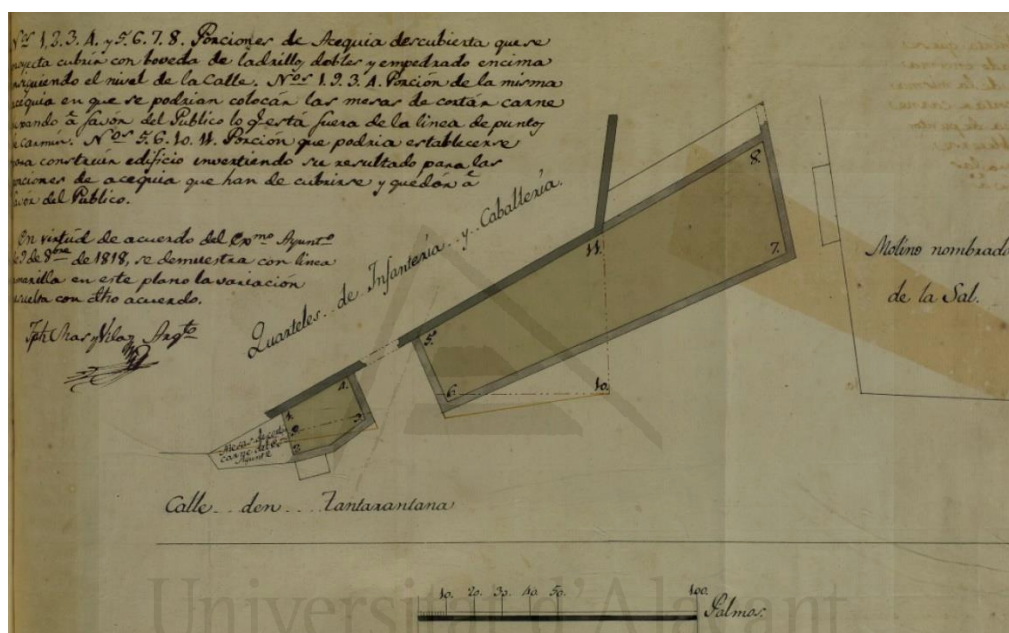 Nos 1. 2. 3. 4. y 5. 6. 7. 8. Porciones de Acequia descubierta que se
cubrir con boveda de ladrillos dobles y empedrado encima
siguiendo el nivel de la Calle. Nos 1. 9. 3. 4. Porcion de la misma
acequia en que se podrian colocar las mesas de cortar carne
â favor del Publico lo q.e está fuera de la linea de puntos
carmin. Nos 5. 6. 10. 11. Porcion que podria establecerse
para construir edificio invirtiendo su resultado para las
porciones de acequia que han de cubrirse y quedar â
favor del Publico.
En virtud de acuerdo del Exmo Ayunto
de 8bre de 1818, se demuestra con linea
amarilla en este plano la variación
con dho acuerdo.
Arqto
Quarteles.. de.. Infantería.. y.. Caballería.
8.
7.
11.
5.
6.
10.
4.
1.
9.
3.
2.
Mesas de cortar
carne del Exo
Ayunto
Molino nombrado
de la Sal.
Calle.. den.... Tantarantana
10. 20. 30. 40. 50. 100.
Palmos.
Universitat d'Alacant